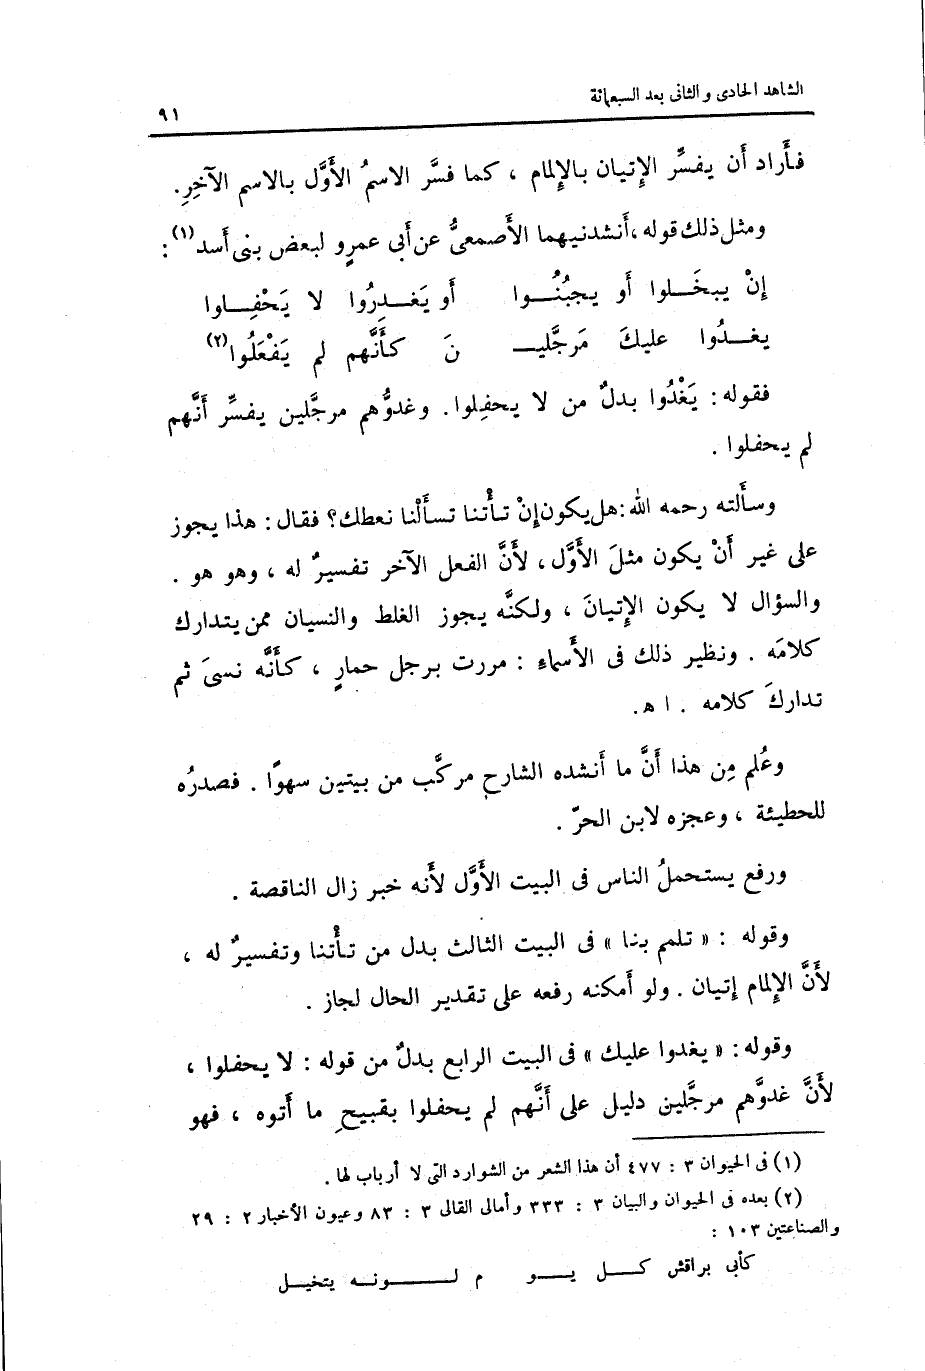 الشاهد الحادى والثانى بعد السبعمائة
٩١
فأَراد أَن يفسِّر الإتيان بالإلمام ، كما فسَّر الاسمُ الأَوَّل بالاسم الآخِرِ.
ومثل ذلك قوله ، أَنشدنيهما الأَصمعىُّ عن أَبى عمرٍو لبعض بنى أَسد(١) :
إنْ يبخَلوا أَو يجبُنُوا أَو يَغدِرُوا لا يَحْفِلوا
يغدُوا عليكَ مَرجَّليـ ـنَ كأَنَّهم لم يَفْعَلُوا(٢)
فقوله : يَغْدُوا بدلٌ من لا يحفِلوا . وغدوُّهم مرجَّلين يفسِّر أَنَّهم
لم يحفلوا .
وسأَلته رحمه الله : هل يكون إنْ تأْتنا تسأَلْنا نعطك؟ فقال : هذا يجوز
على غير أَنْ يكون مثلَ الأَوَّل ، لأَنَّ الفعل الآخر تفسيرٌ له ، وهو هو .
والسؤال لا يكون الإتيانَ ، ولكنَّه يجوز الغلط والنسيان ممن يتدارك
كلامَه . ونظير ذلك فى الأَسماءِ : مررت برجل حمارٍ ، كأَنَّه نسىَ ثم
تداركَ كلامه . ا ه.
وعُلم مِن هذا أَنَّ ما أَنشده الشارح مركَّب من بيتين سهوًا . فصدرُه
للحطيئة ، وعجزه لابن الحرّ .
ورفع يستحملُ الناس فى البيت الأَوَّل لأَنه خبر زال الناقصة .
وقوله : « تلمم بنا » فى البيت الثالث بدل من تأْتنا وتفسيرٌ له ،
لأَنَّ الإلمام إتيان . ولو أَمكنه رفعه على تقدير الحال لجاز .
وقوله : « يغدوا عليك » فى البيت الرابع بدلٌ من قوله : لا يحفلوا ،
لأَنَّ غدوَّهم مرجَّلين دليل على أَنَّهم لم يحفلوا بقبيحِ ما أَتوه ، فهو
(١) فى الحيوان ٣ : ٤٧٧ أن هذا الشعر من الشوارد التى لا أرباب لها .
(٢) بعده فى الحيوان والبيان ٣ : ٣٣٣ وأمالى القالى ٣ : ٨٣ وعيون الأخبار ٢ : ٢٩
والصناعتين ١٠٣ :
كأبى براقش كل يو م لونه يتخيل